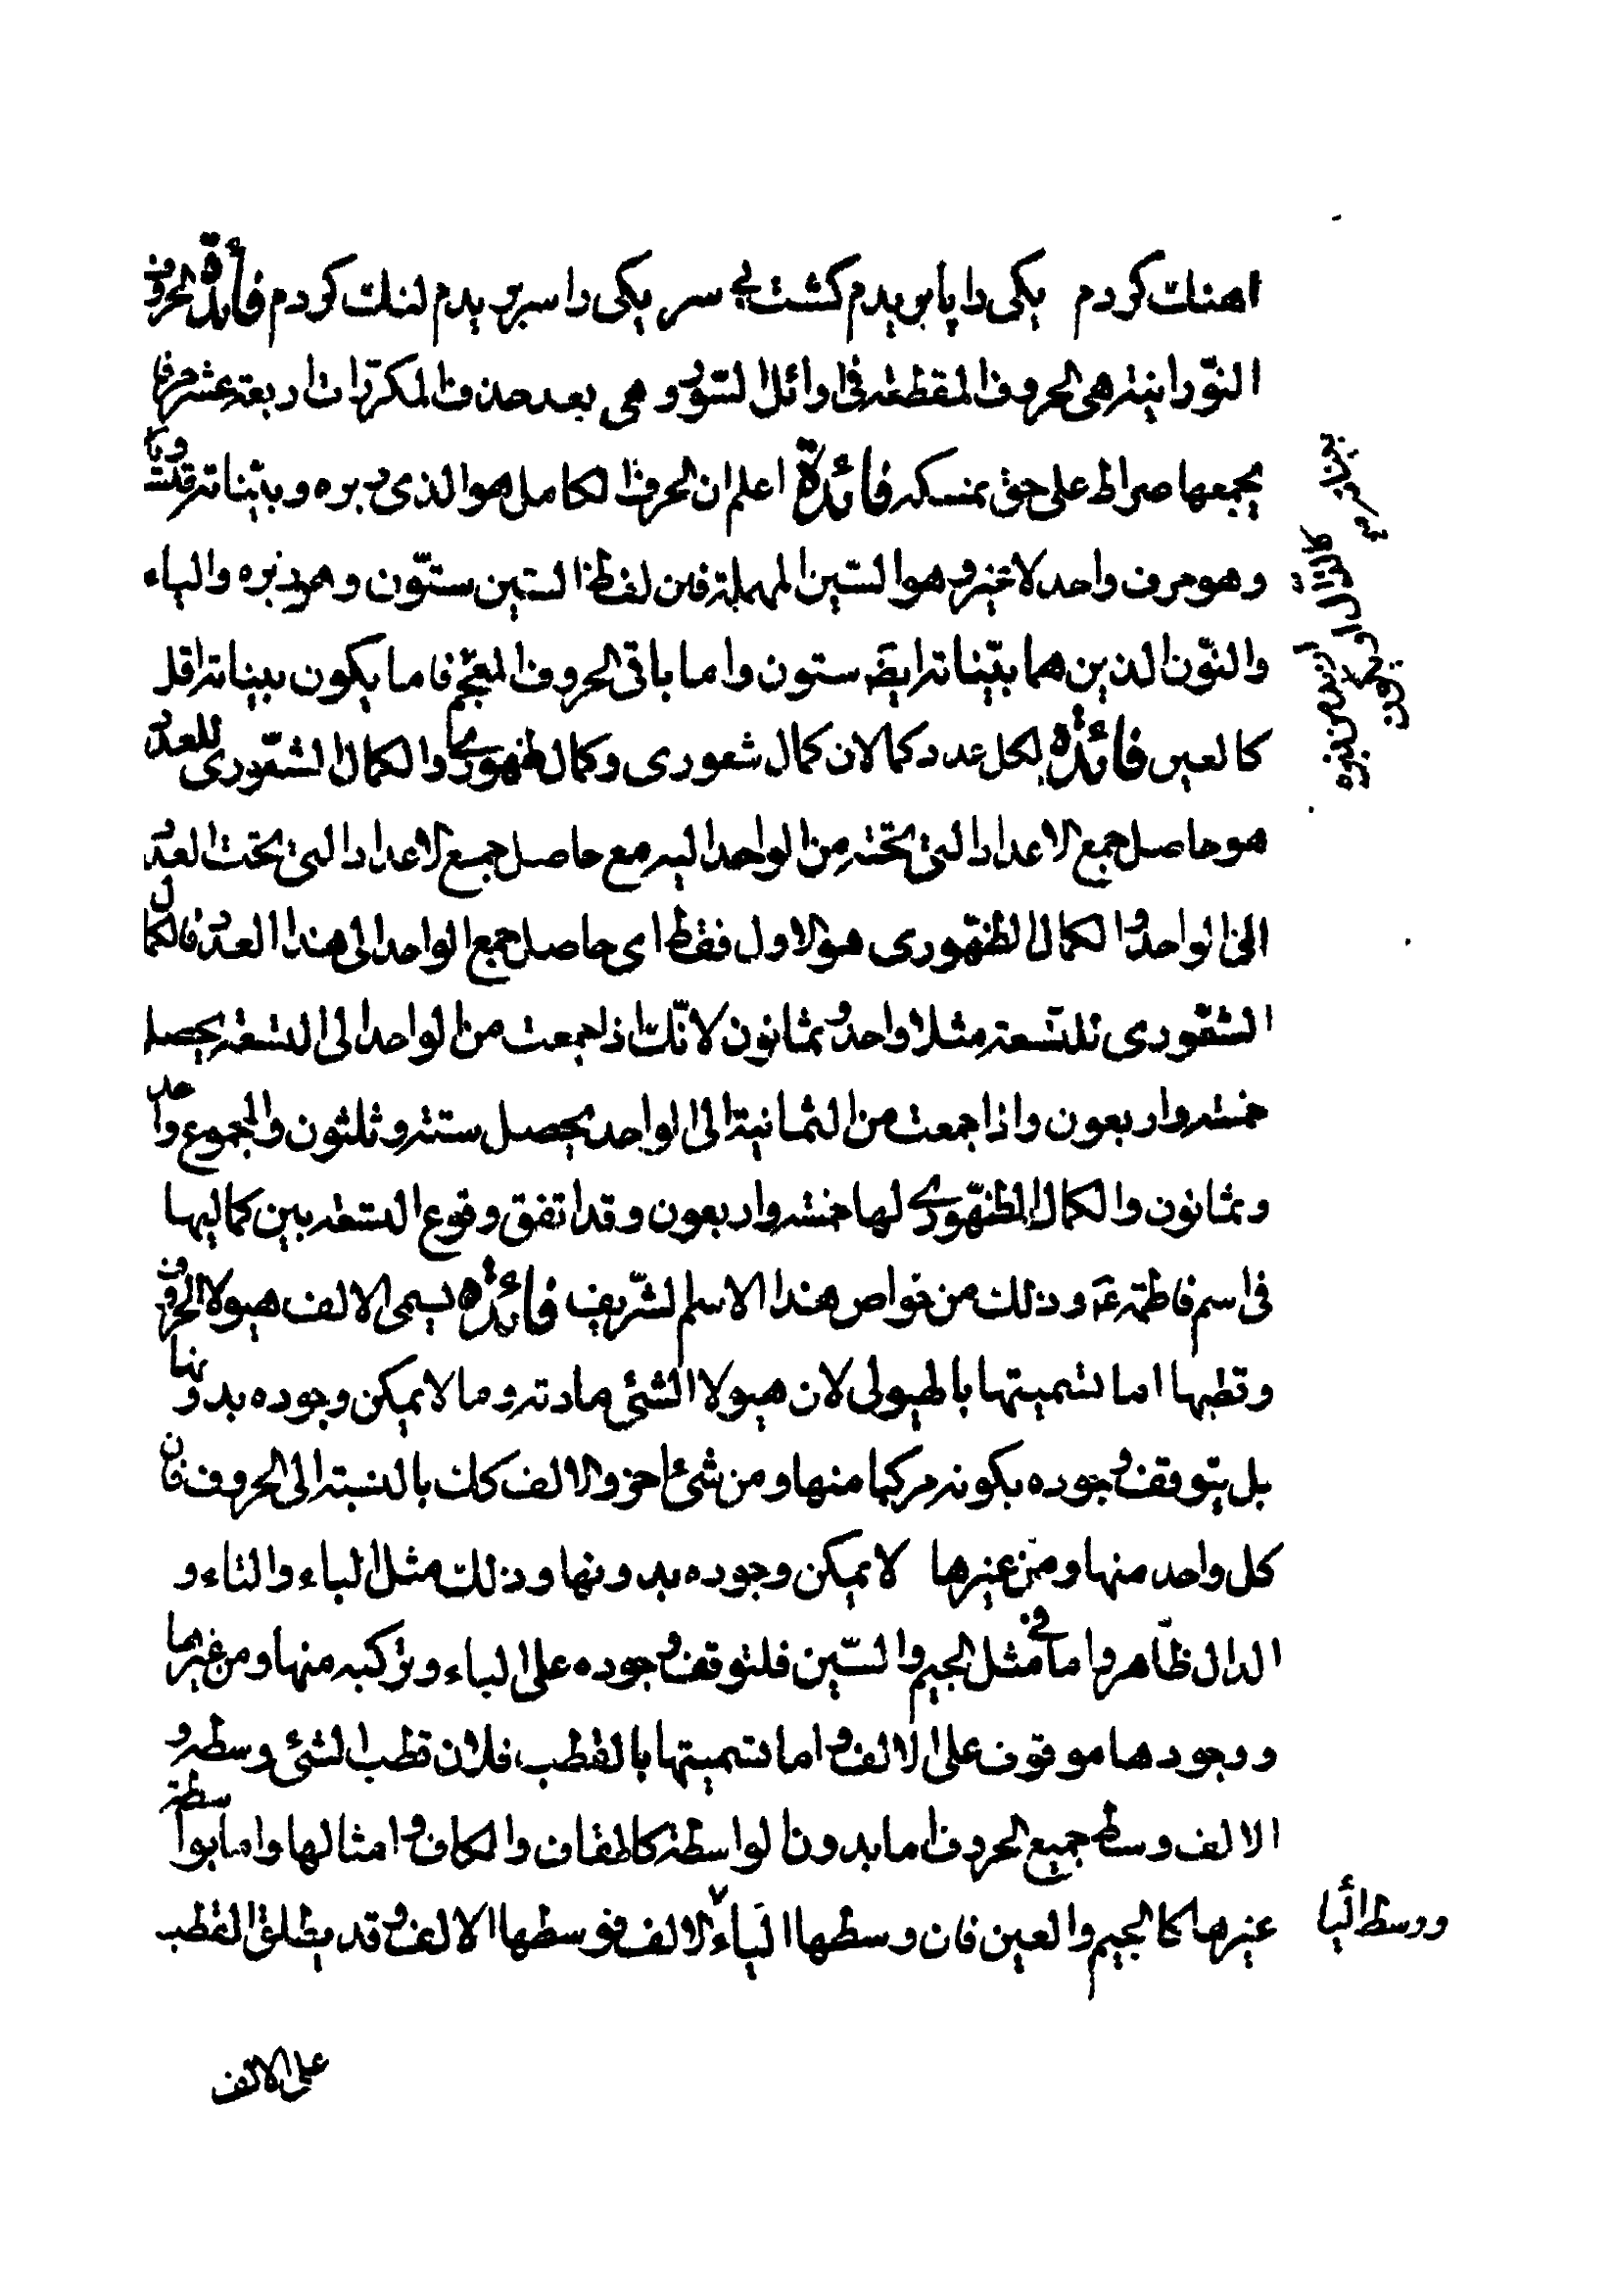 اهنك كردم يكى را پا بريدم كشت بى سر يكى را سر بريدم لنك كردم فائدة الحروف
النورانية هى الحروف المقطعة فى اوائل السور وهى بعد حذف المكررات اربعة عشر حرفا
يجمعها صراط على حق نمسكه فائدة اعلم ان الحرف الكامل هو الذى زبره وبيناته متساويان
وهو حرف واحد لا غير وهو السين المهملة فمن لفظ السين ستون وهو زبره والياء
والنون الذين هما بيناته ايضا ستون واما باقى الحروف المعجم فاما يكون بيناته اقل
كالعين فائدة لكل عدد كمالان كمال شعورى وكمال ظهورى والكمال الشعورى للعدد
هو حاصل جمع الاعداد التى تحته من الواحد اليه مع حاصل جمع الاعداد التى تحت العدد
الى الواحد والكمال الظهورى هو الاول فقط اى حاصل جمع الواحد الى هذا العدد فالكمال
الشعورى للتسعة مثلا واحد وثمانون لانك اذا جمعت من الواحد الى التسعة يحصل
خمسة واربعون واذا جمعت من الثمانية الى الواحد يحصل ستة وثلثون والمجموع واحد
وثمانون والكمال الظهورى لها خمسة واربعون وقد اتفق وقوع التسعة بين كماليها
فى اسم فاطمة ع وذلك من خواص هذا الاسم الشريف فائدة يسمى الالف هيولا الحروف
وقطبها اما تسميتها بالهيولى لان هيولا الشئ مادته وما لا يمكن وجوده بدونها
بل يتوقف وجوده بكونه مركبا منها ومن شئ اخر والالف كك بالنسبة الى الحروف فان
كل واحد منها ومن غيرها لا يمكن وجوده بدونها وذلك مثل الباء والتاء و
الدال ظاهر واما فى مثل الجيم والسين فلتوقف وجوده على الياء وتركبه منها ومن غيرها
ووجودها موقوف على الالف واما تسميتها بالقطب فلان قطب الشئ وسطه و
الالف وسط جميع الحروف اما بدون الواسطة كالقاف والكاف وامثالها واما بواسطة
غيرها كالجيم والعين فان وسطها الياء لالف فوسطها الالف وقد يطلق القطب
ووسط اليا
على الالف